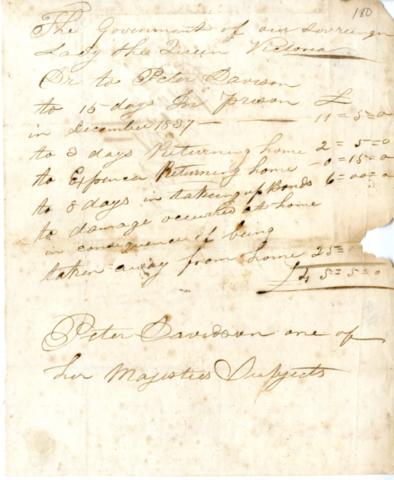 180
The Government of our Sovereign
Lady the Queen Victoria
Dr to Peter Davison
to 15 days In prison £
in December 1837 — 11=5=0
to 3 days Returning home 2=5=0
to Expences Returning home 0=15=0
to 8 days in taking up Bonds 6=00=0
to damage occurred at home
in consequence of being
taken away from home 25=
£45=5=0
Peter Davidson one of
her Majesties Subjects